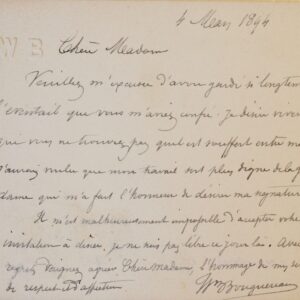 4 Mars 1894
W B
Chère Madame
Veuillez m'excuser d'avoir gardé si longtemps
l'éventail que vous m'aviez confié. Je désire vivement
que vous ne trouviez pas qu'il ait souffert entre mes
J'aurais voulu que mon travail fut plus digne de la
dame qui m'a fait l'honneur de désirer ma signature
Il m'est malheureusement impossible d'accepter votre
invitation à dîner, je ne suis pas libre ce jour là. Avec
regrets Daignez agréer Chère Madame, l'hommage de my
de respect et d'affection
Wm Bouguereau